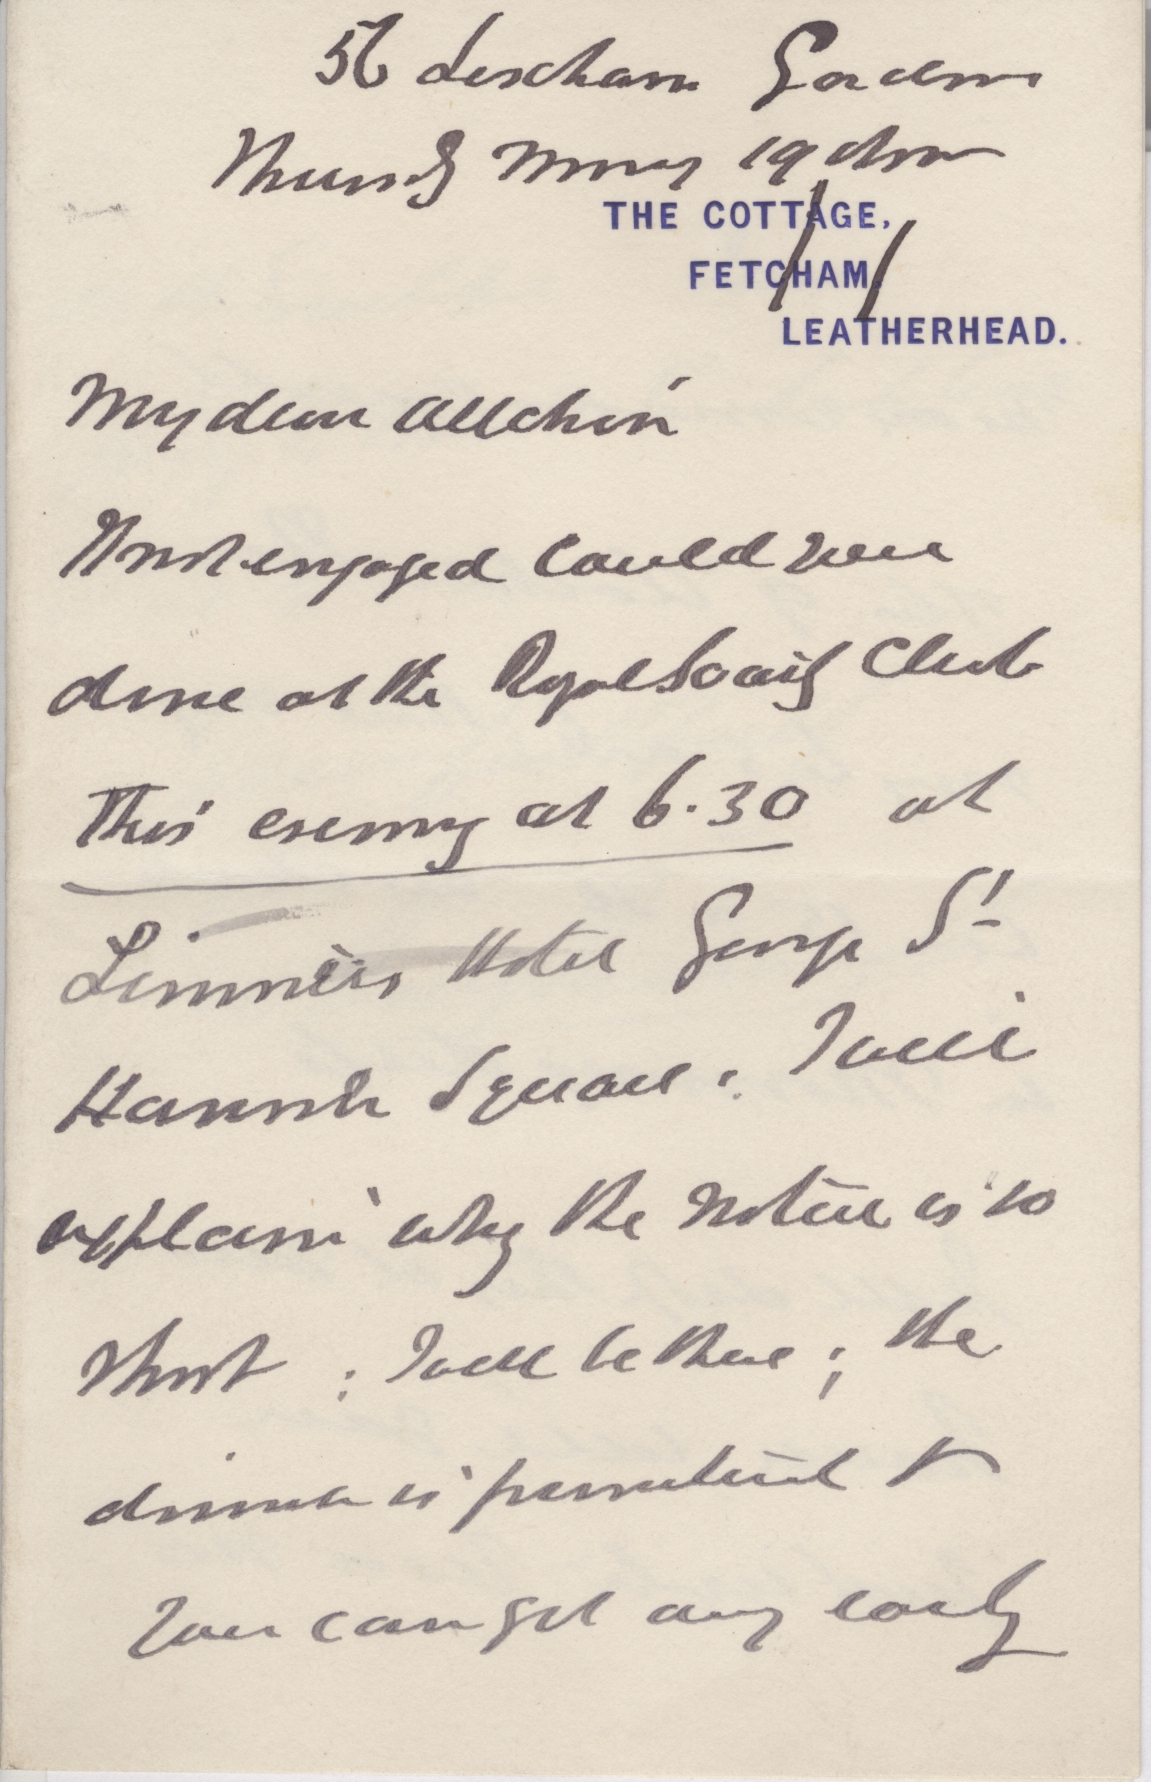 56 Lexham Gardens
Thursdy Morng 19
THE COTTAGE,
FETCHAM,
LEATHERHEAD.
My dear Allchin
If not engaged could you
dine at the Royal Society Club
this evening at 6.30 at
Limmers Hotel George St
Hanover Square. I will
explain why the notice is so
short : I will be there ; the
dinner is punctual &
you can get away early